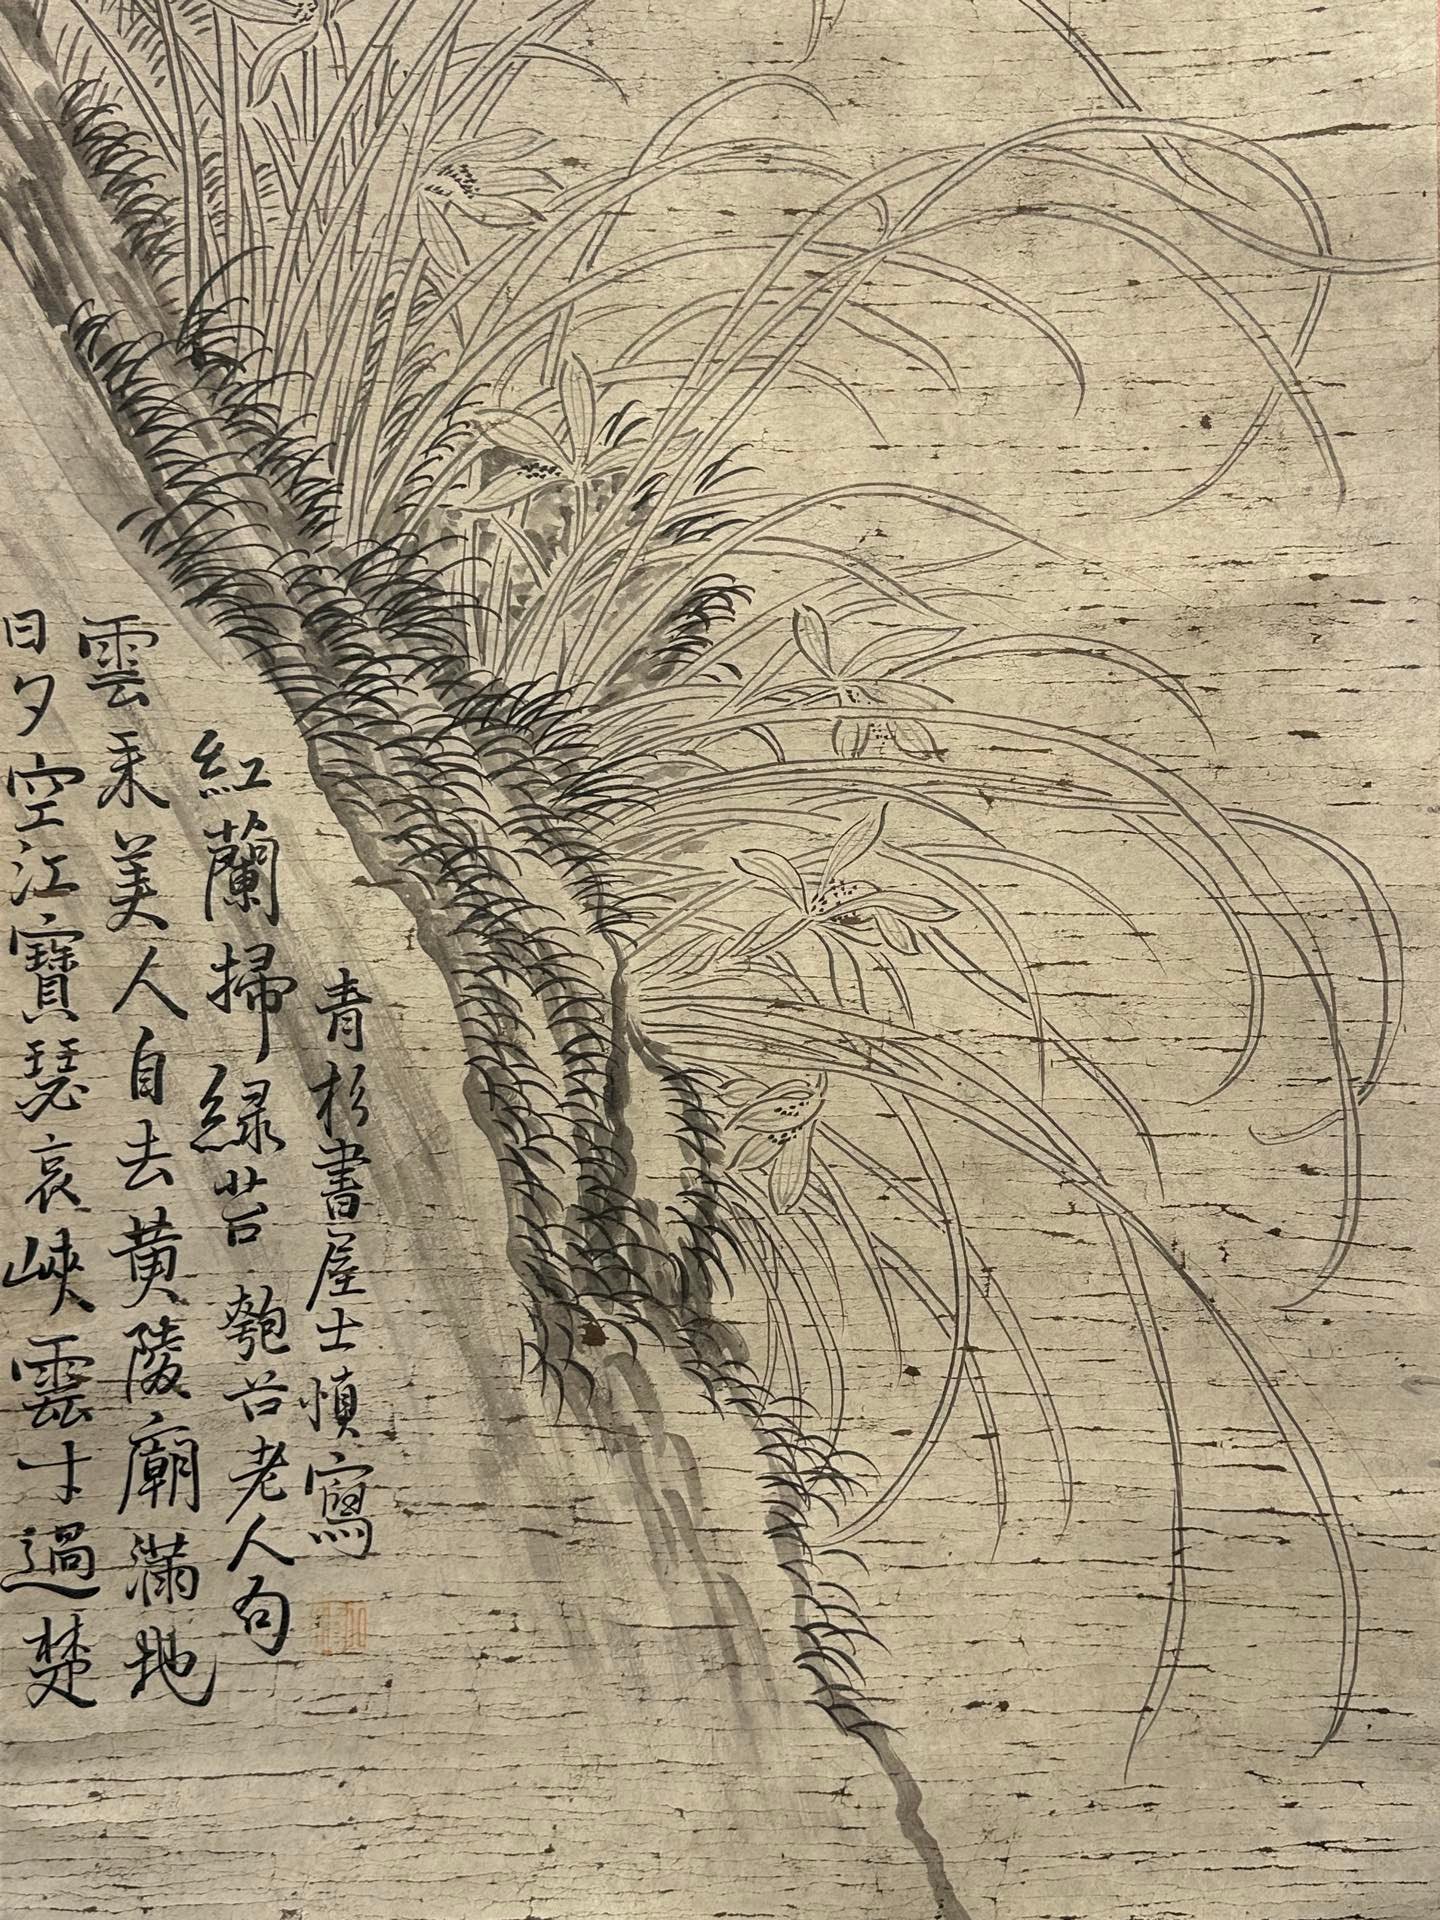 日夕空江寶瑟哀峽雲才過楚
雲來美人自去黃陵廟滿地
紅蘭掃綠苔 匏老人句
青杉書屋士慎寫